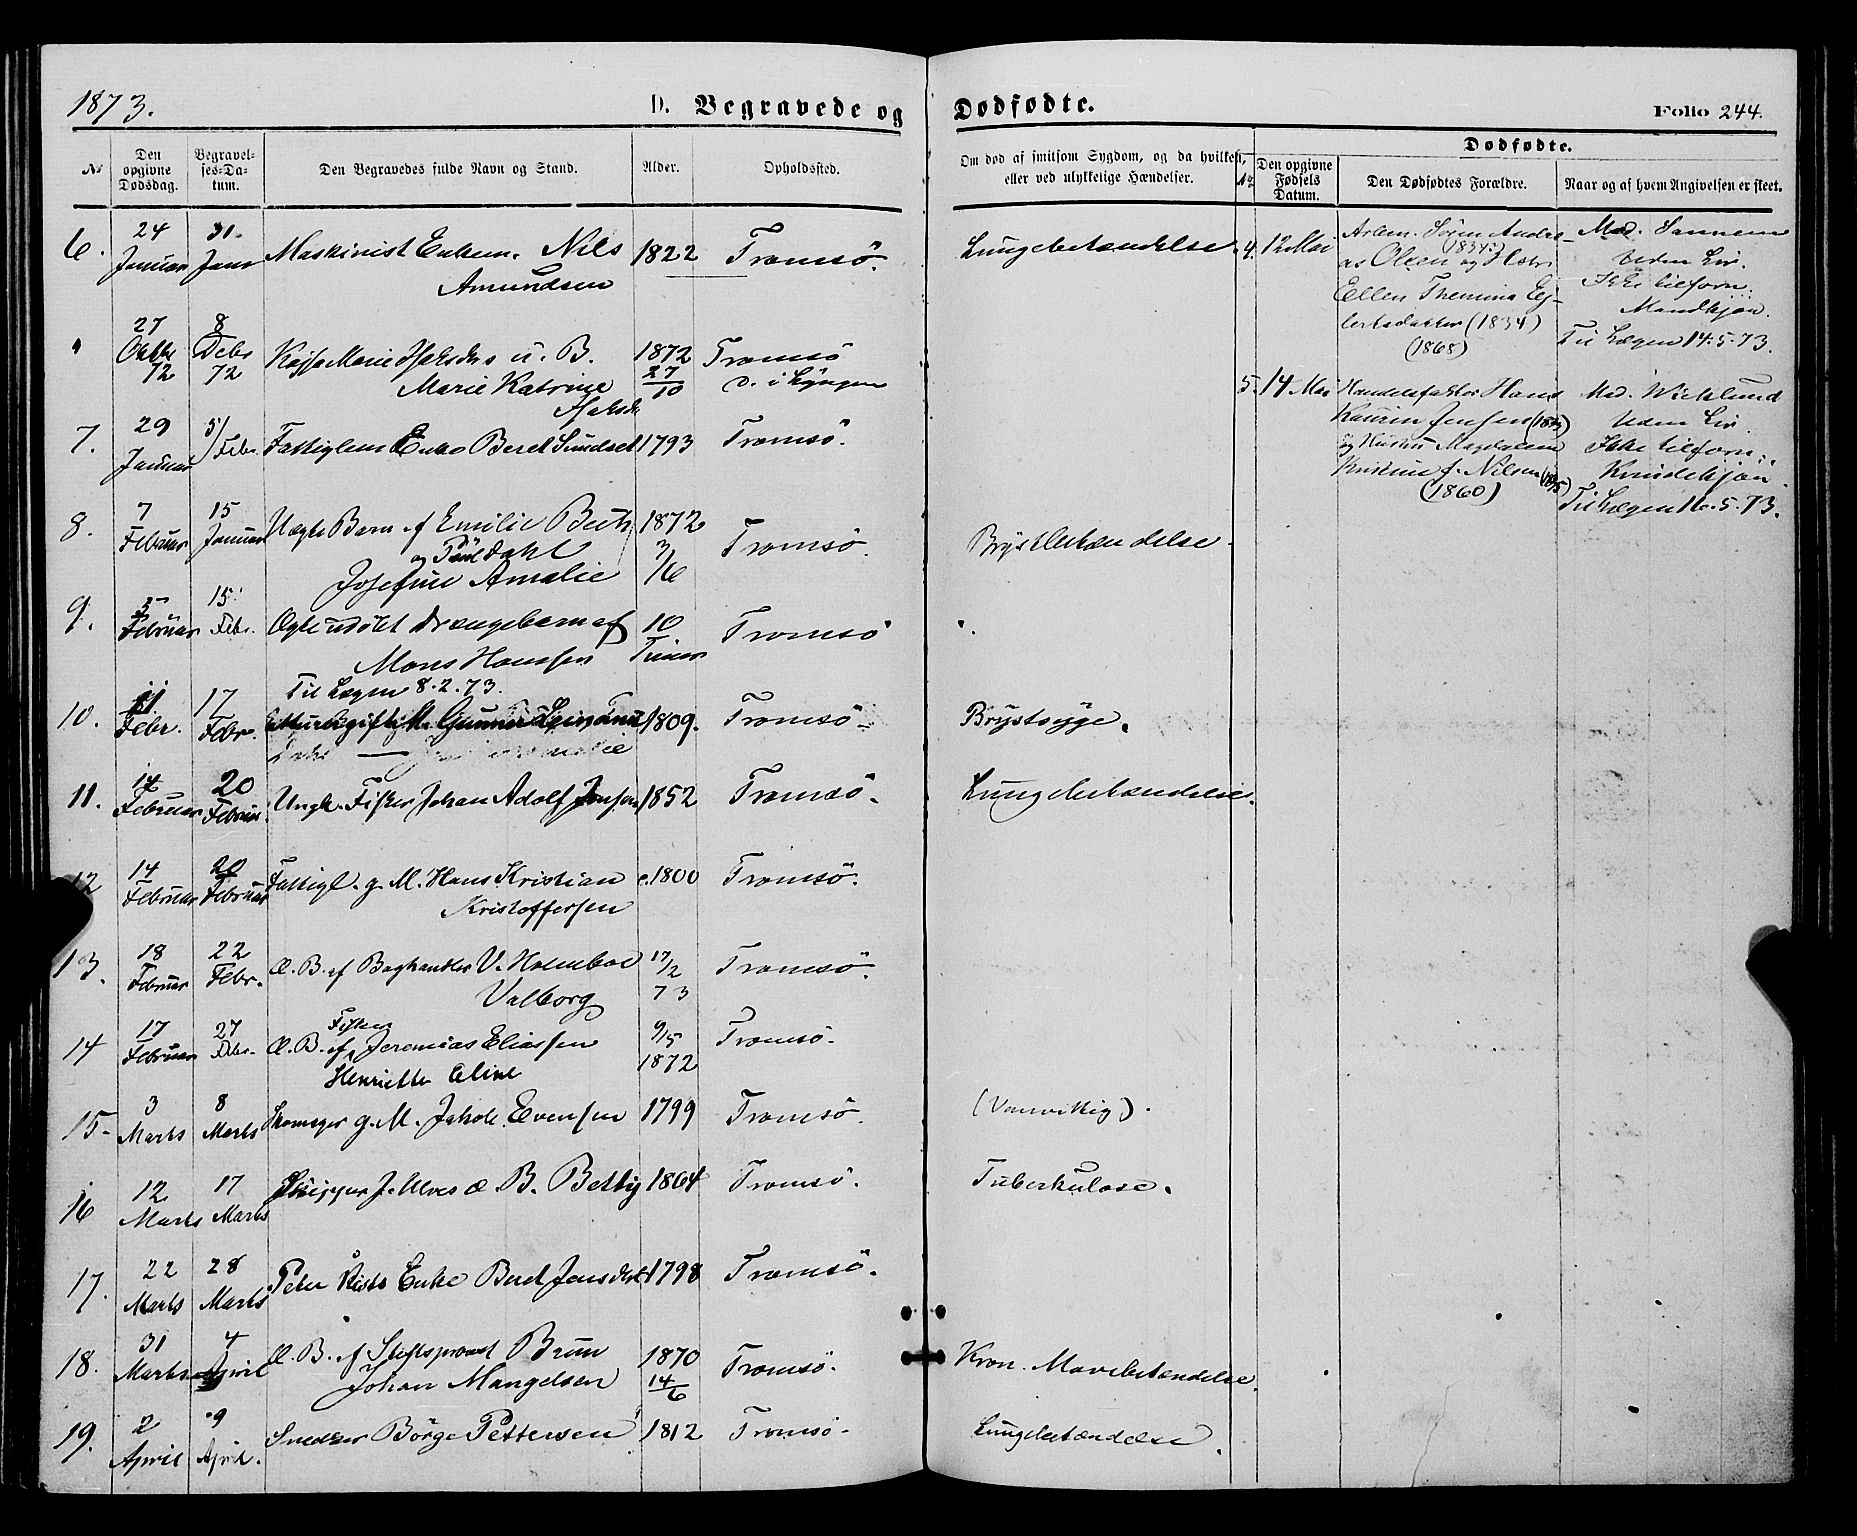 1873. D. Begravede og Dødfødte. Folio 244.
No Den opgivne Dødsdag. Begravelses-Datum. Den Begravedes fulde Navn og Stand. Alder. Opholdssted. Om død af smitsom Sygdom, og da hvilken, eller ved ulykkelige Hændelser.
Dødfødte.
No Den opgivne Fødsels Datum. Den Dødfødtes Forældre. Naar og af hvem Angivelsen er skeet.
6. 24 Januar 31. Janr Maskinist Enkem. Nils Amundsen 1822 Tromsö. Lungebetændelse
27 Oktbr 72 8 Debr 72 Kajsa Marie u. B. Marie Katrine 1872 27/10 Tromsö i Lyngen
7. 29 Januar 5/ Febr. Fattiglem Enke Beret Sundset 1793 Tromsö.
8. 7 Februar 15 Januar Uægte Barn af Emilie og Paul Dahl Josefine Amalie 1872 3/6 Tromsö. Brystbetændelse.
9. 5 Februar 15. Febr. Ægte udöbt Drængebarn af Mons Hanssen 10 Timer Tromsö
Til Lægen 8.2.73.
10. 11 Febr. 17 Febr. 1809. Tromsö Brystsyge.
11. 14 Februar 20 Februar. Ungk. Fisker Johan Adolf Jensen 1852 Tromsö. Lungebetændelse.
12 14 Februar 20 Februar Fattigl. g. M. Hans Kristian Kristoffersen c. 1800 Tromsö.
13. 18 Februar 22 Febr. Æ. B. af Boghandler V. Holmboe Valborg 17/2 73 Tromsö.
14 17 Februar 27 Febr. Æ. B. af Fisker Jeremias Eliassen Henriette Eline 9/5 1872 Tromsö.
15. 3 Marts 8 Marts Skomager g. M. Jakob Evensen 1799 Tromsö. (Vanvittig).
16 12 Marts 17 Marts Skipper J. Ulves æ B. Betty 1864 Tromsö. Tuberkulose.
17. 22 Marts 28 Marts Peter Enke Beret Jensdtr 1798 Tromsö.
18. 31 Marts 4 April Æ. B. af Stiftsprovst Brun Johan Mangelsen 1870 14/6 Tromsö. Kron. Mavebetændelse.
19. 2 April 9 April. Snedker Börge Pettersen 1812 Tromsö. Lungebetændelse.
4. 12 Mai Arbm. Sören Andreas Olsen (1834) og Hustr. Ellen Eg-
lertsdatter (1834)
(1868)
Mad. Sannem
Uden Liv.
Ikke tilforn.
Mandkjön.
Til Lægen 14.5.73.
5. 14 Mai Handelsfaktor Hans
Jensen
og Hustru Magdalena
f. Nilsen
(1860)
Mad. Wicklund
Uden Liv.
Ikke tilforn.
Kvindekjön.
Til Lægen 16.5.73.